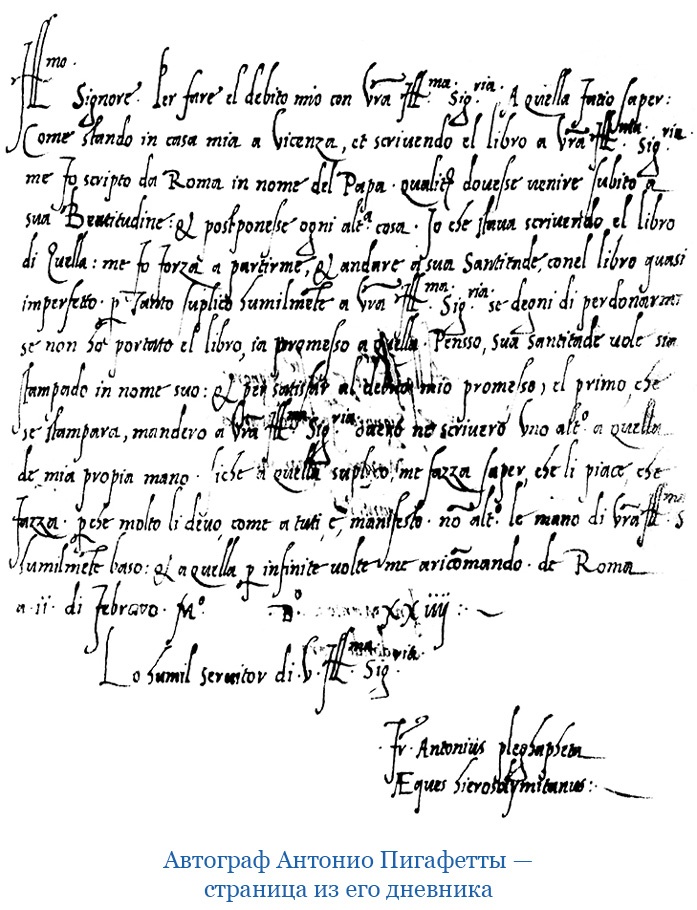 Ill.mo
Signore. Per fare el debito mio con Vra Ill.ma Sig.ria. A quella facio saper:
Come stando in casa mia a Vicenza, et scrivendo el libro a Vra Ill.ma Sig.ria.
me fo scripto da Roma in nome del Papa. qualit dovesse venire subito a
sua Beatitudine: & postponesse ogni alt.a cosa. Io che stava scrivendo el libro
di Quella: me fo forza a partirme, & andare a sua Santitade, con el libro quasi
imperfetto. p tanto suplico humilmete a Vra Ill.ma Sig.ria. se degni di perdonarmi
se non ho portato el libro, ia promesso a quella. Pensso, sua Santitade vole sia
stampado in nome suo: & per satisfar al debito mio promesso, el primo che
se stampara, mandero a Vra Ill.ma Sig.ria. overo ne scrivero Uno alt.o a quella
de mia propia mano. siche a quella suplico, me fazza saper, che li piace che
fazza. pche molto li devo, come a tuti e manifesto. no alt.o le mano di Vra Ill.ma S
humilmete baso: & a quella p infinite volte me aricomando. de Roma
a ii. di febraro. M.o D.o XXiiij:
Lo humil servitor di .V. Ill.ma Sig.ria.
Fr.o Antonius pleghapheta
Æques hierosolymitanus:
Автограф Антонио Пигафетты —
страница из его дневника